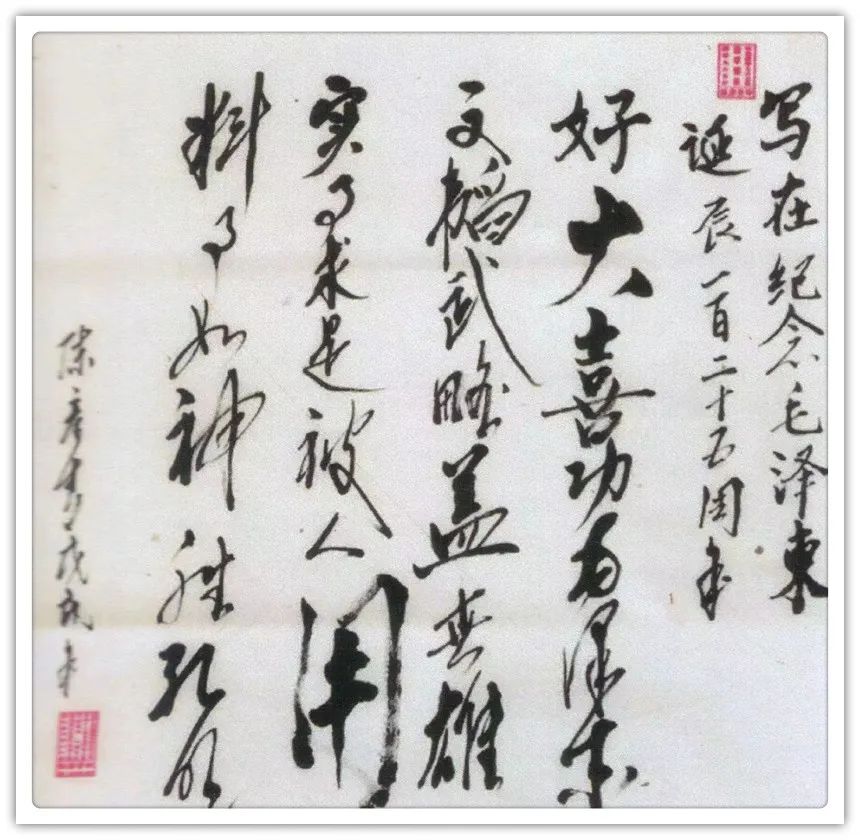 写在纪念毛泽东
诞辰一百二十五周年
好大喜功为泽东
文韬武略盖英雄
实事求是被人
料事如神胜孔明
陈彦戊戌年